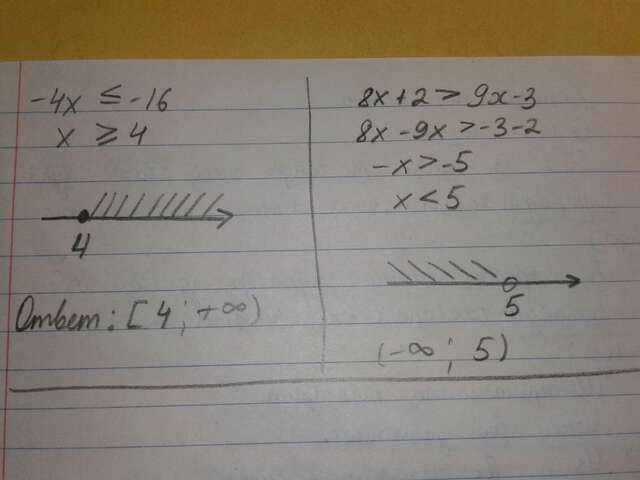 -4x ≤ -16
x ≥ 4
4
Ответ: [4; +∞)
8x+2 > 9x-3
8x-9x > -3-2
-x > -5
x < 5
5
(-∞; 5)